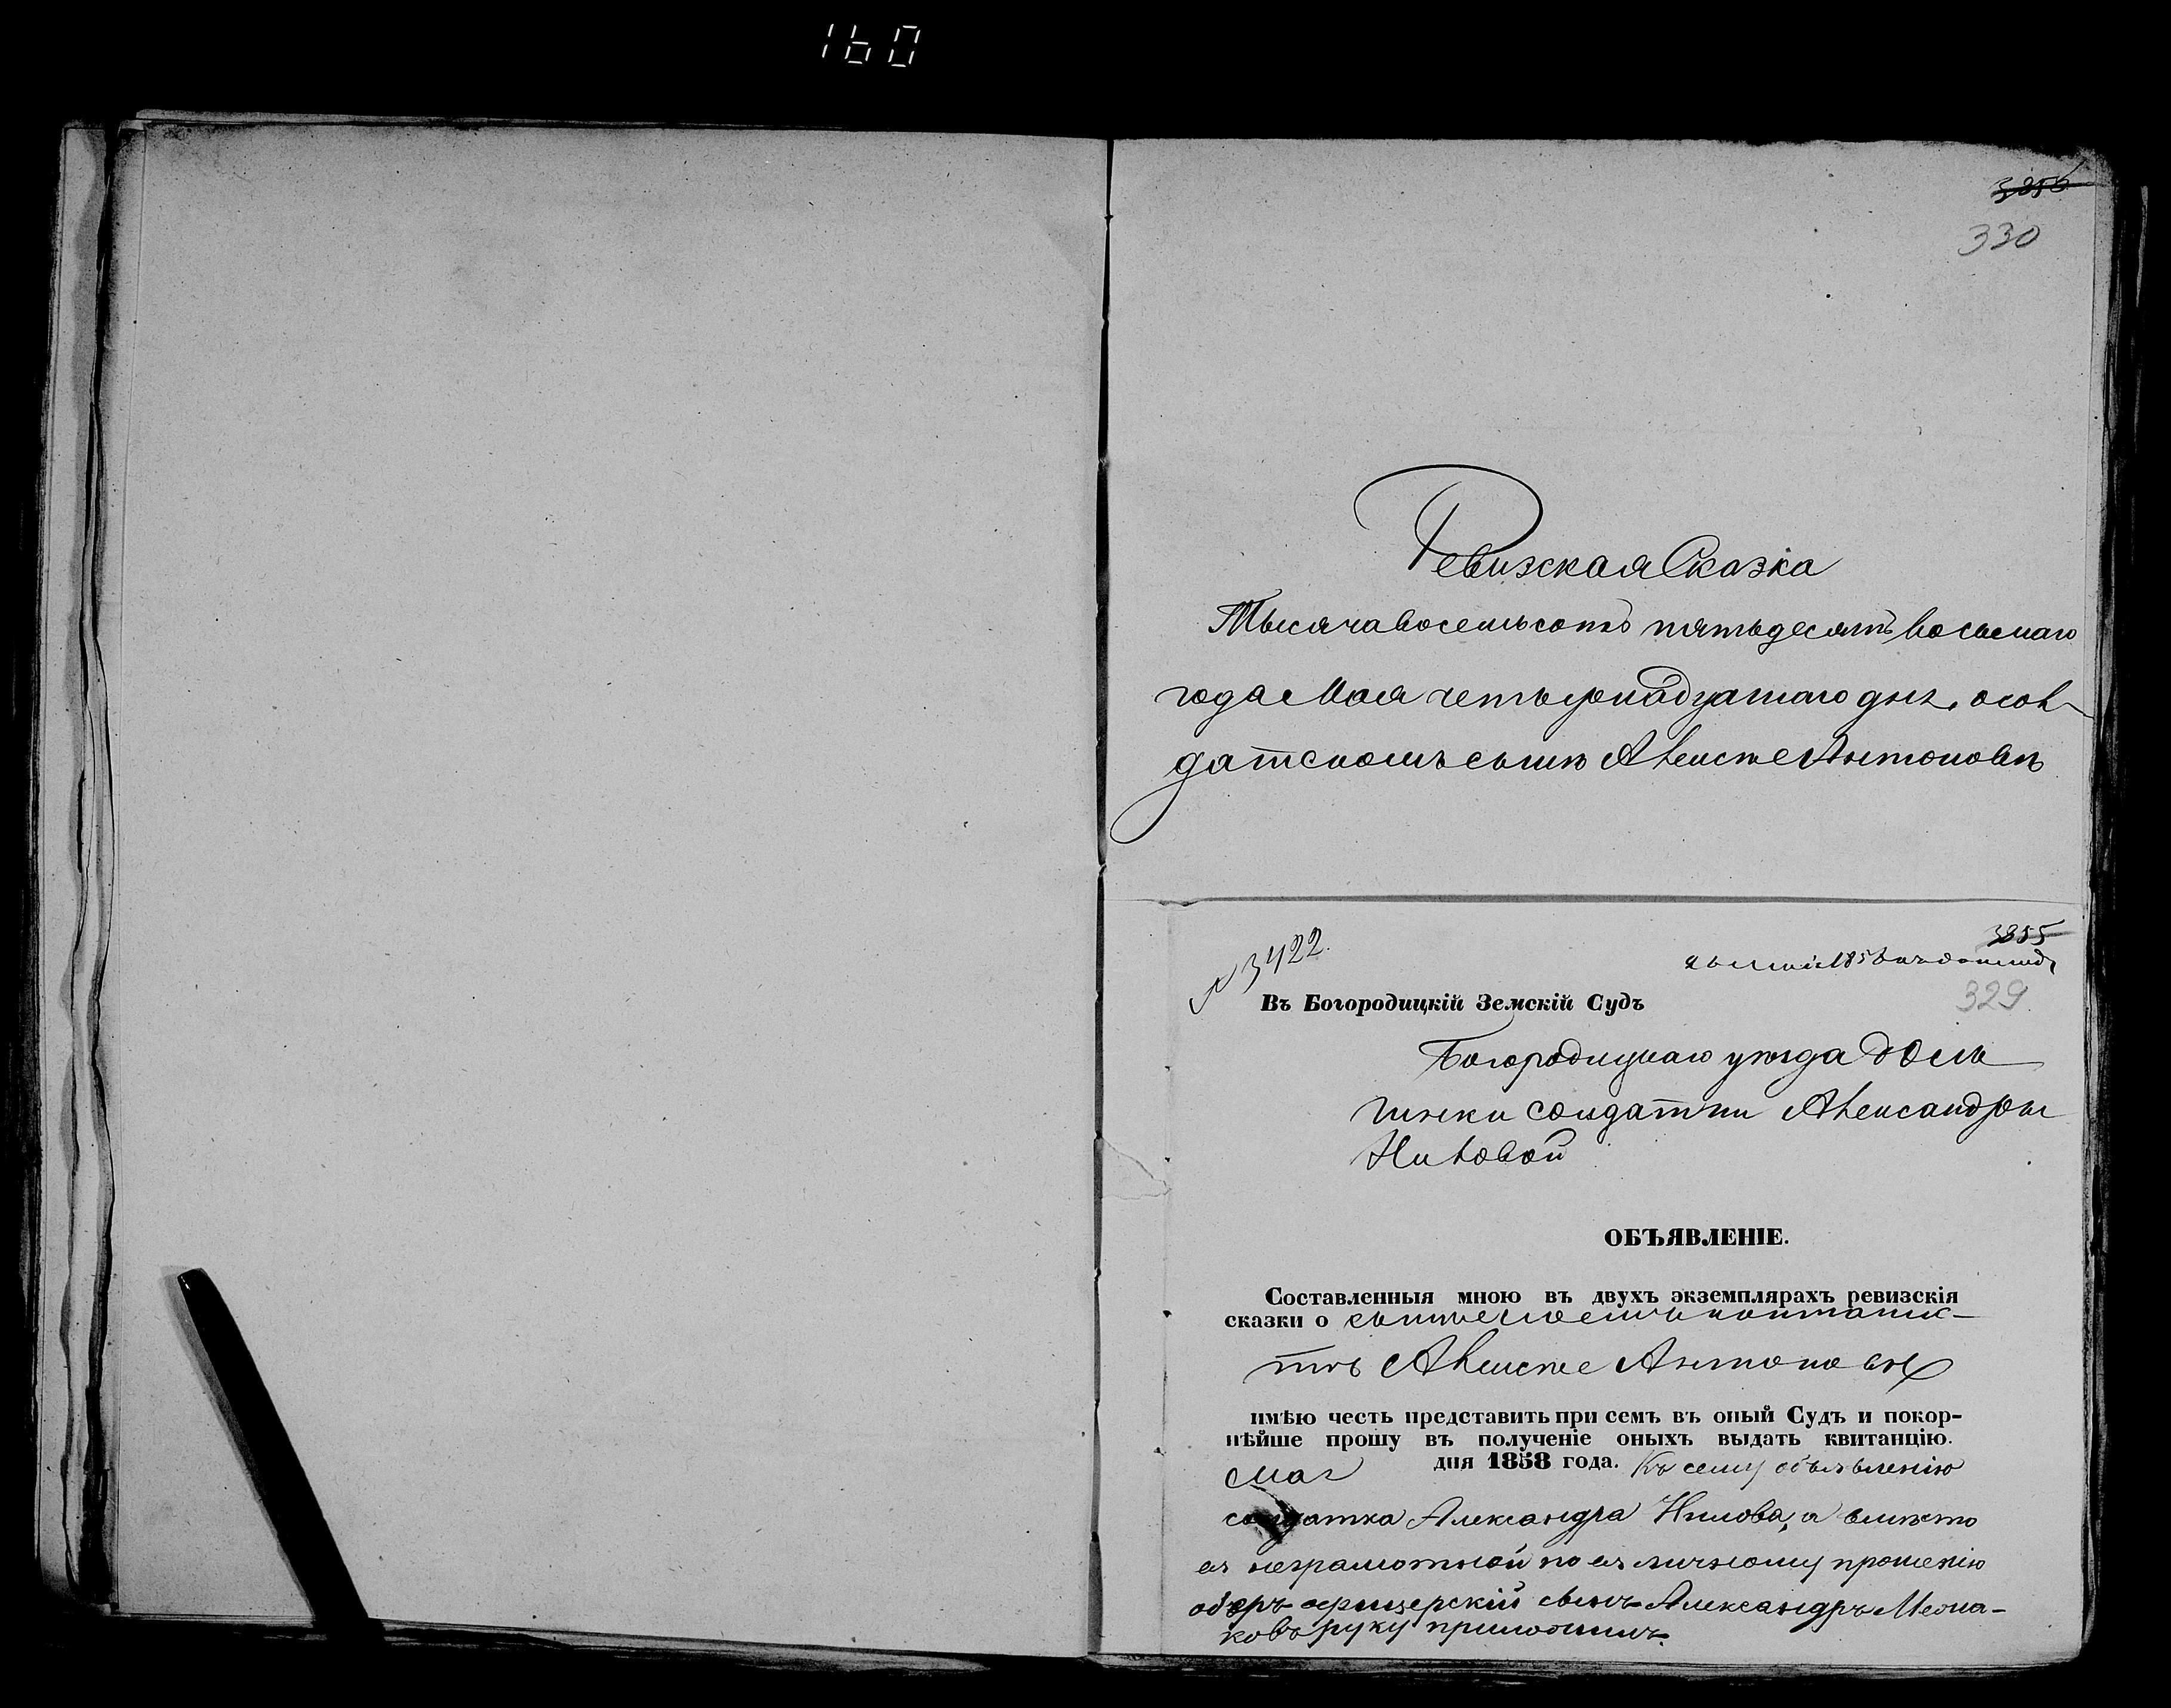 160
3856
330
Ревизская Сказка
Тысяча восемьсотъ пятьдесятъ восьмаго
года Мая четырнадцатаго дня, о сол-
датскомъ сынѣ Алексѣе Антоновѣ
3855
№ 3422.
329
Въ Богородицкій Земскій Судъ
Богородицкаго уѣзда
солдатки Александры
Ниловой
ОБЪЯВЛЕНІЕ.
Составленныя мною въ двухъ экземплярахъ ревизскія
сказки о
Алексѣе Антоновѣ
имѣю честь представить при семъ въ оный Судъ и покор-
нѣйше прошу въ полученіе оныхъ выдать квитанцію.
Мая дня 1858 года. Къ сему объявленію
солдатка Александра Нилова, а вмѣсто
ея неграмотной по ея личному прошенію
оберъ офицерскій сынъ Александръ
руку приложилъ.